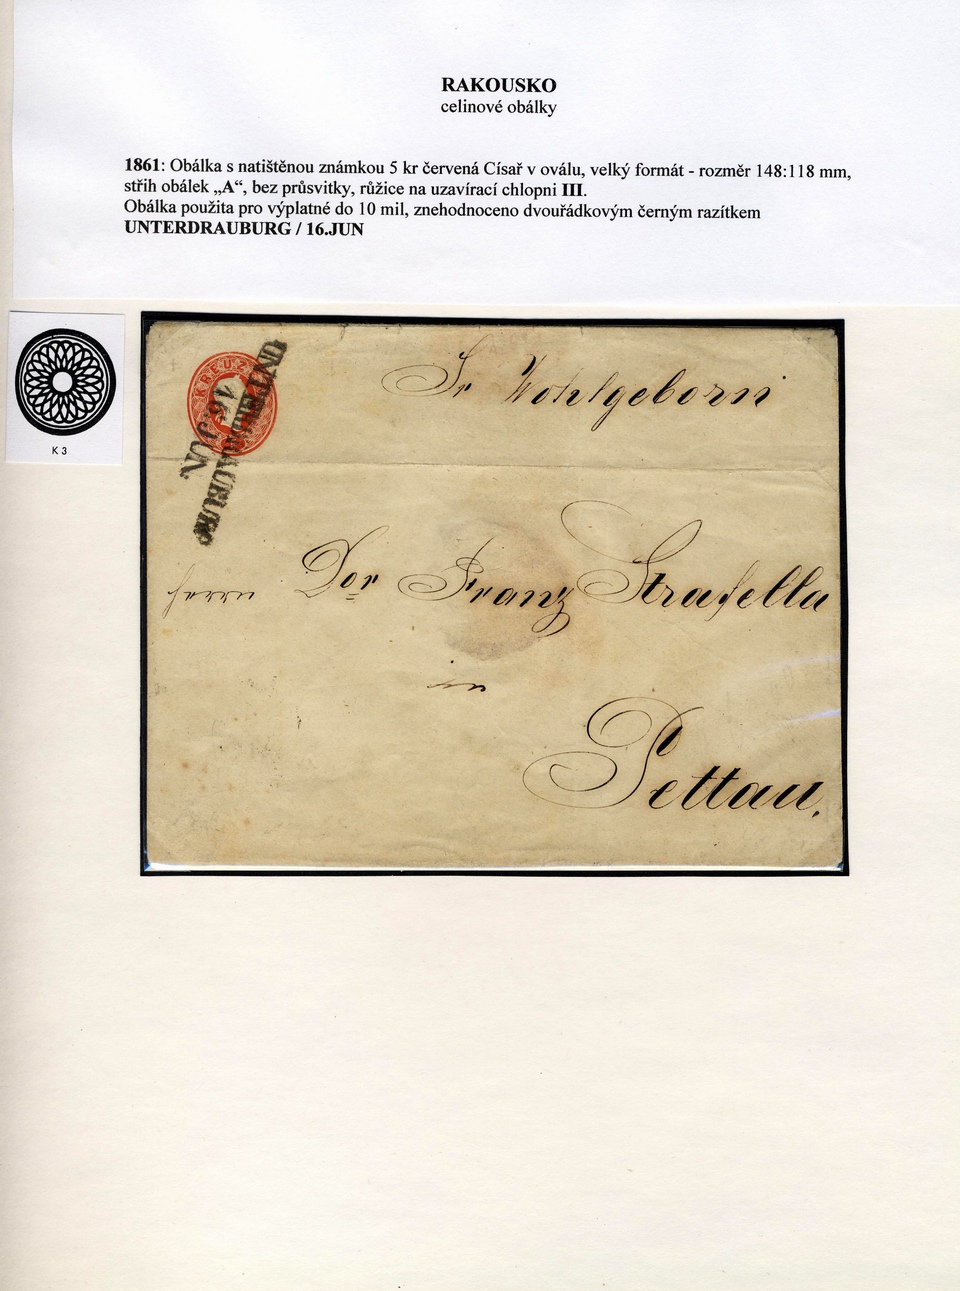 RAKOUSKO
celinové obálky
1861: Obálka s natištěnou známkou 5 kr červená Císař v oválu, velký formát - rozměr 148:118 mm,
střih obálek „A“, bez průsvitky, růžice na uzavírací chlopni III.
Obálka použita pro výplatné do 10 mil, znehodnoceno dvouřádkovým černým razítkem
UNTERDRAUBURG / 16.JUN
K 3
KREUZ
UNTERDRAUBURG
16. JUN.
Sr Wohlgeborn
Herrn Dor Franz Strafella
in
Pettau.